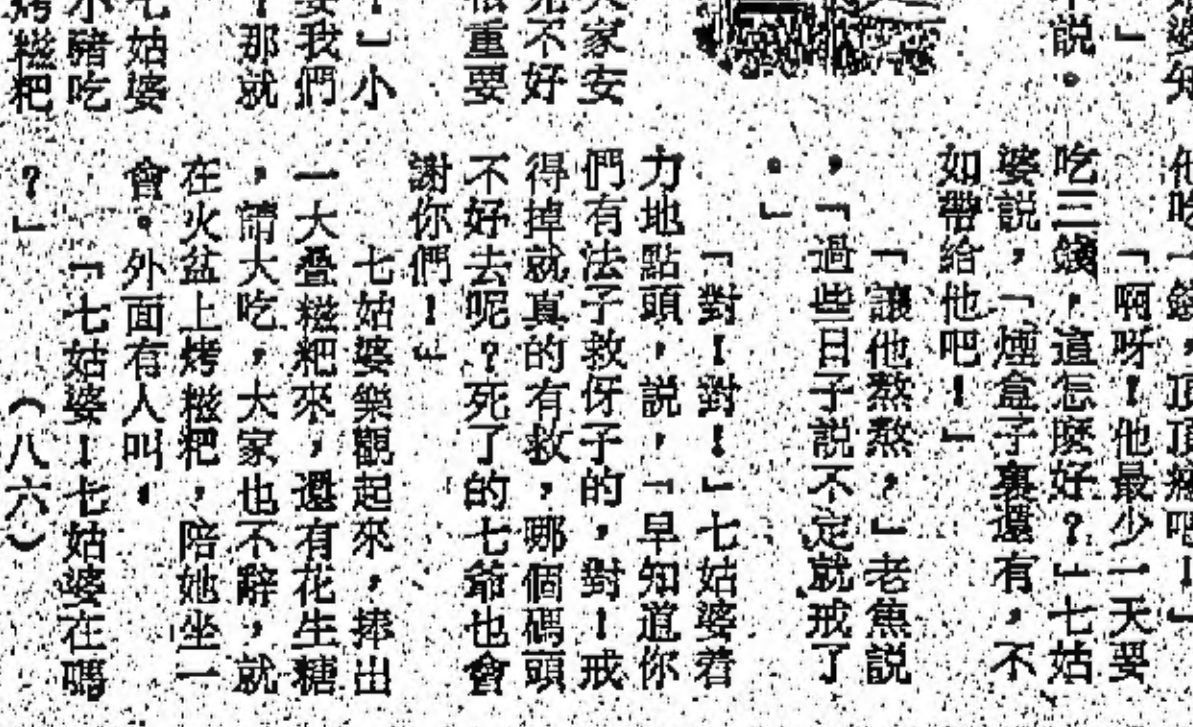 婆知
」
説。
家安
不好
重要
」小
我們
那就
姑婆
豬吃
糍粑
他吃一錢，頂頂癮吧！」
「啊呀！他最少一天要
吃三錢，這怎麼好？」七姑
婆説，「煙盒子裏還有，不
如帶給他吧！」
「讓他熬熬，」老焦説
，「過些日子説不定就戒了
。」
「對！對！」七姑婆着
力地點頭，説，「早知道你
們有法子救伢子的，對！戒
得掉就真的有救，哪個碼頭
不好去呢？死了的七爺也會
謝你們！」
七姑婆樂觀起來，捧出
一大叠糍粑來，還有花生糖
，請大吃，大家也不辭，就
在火盆上烤糍粑，陪她坐一
會。外面有人叫：
「七姑婆！七姑婆在嗎
？」（八六）